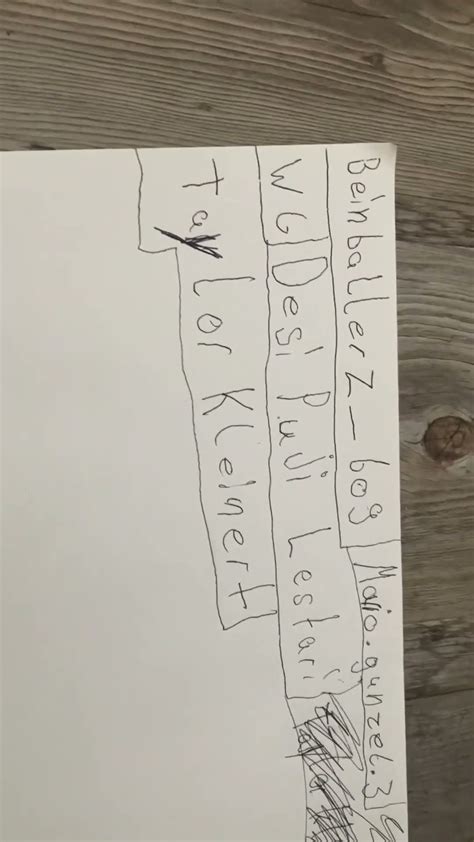 Beinballerz_bog Mario.gunzel.3
WG Desi Puji Lestari
Taylor Kleinert